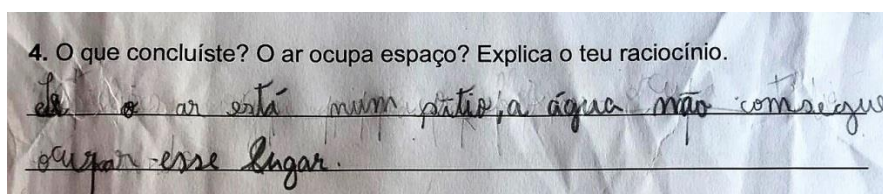 4. O que concluíste? O ar ocupa espaço? Explica o teu raciocínio.
o ar está num pátio, a água não consegue
ocupar esse lugar.